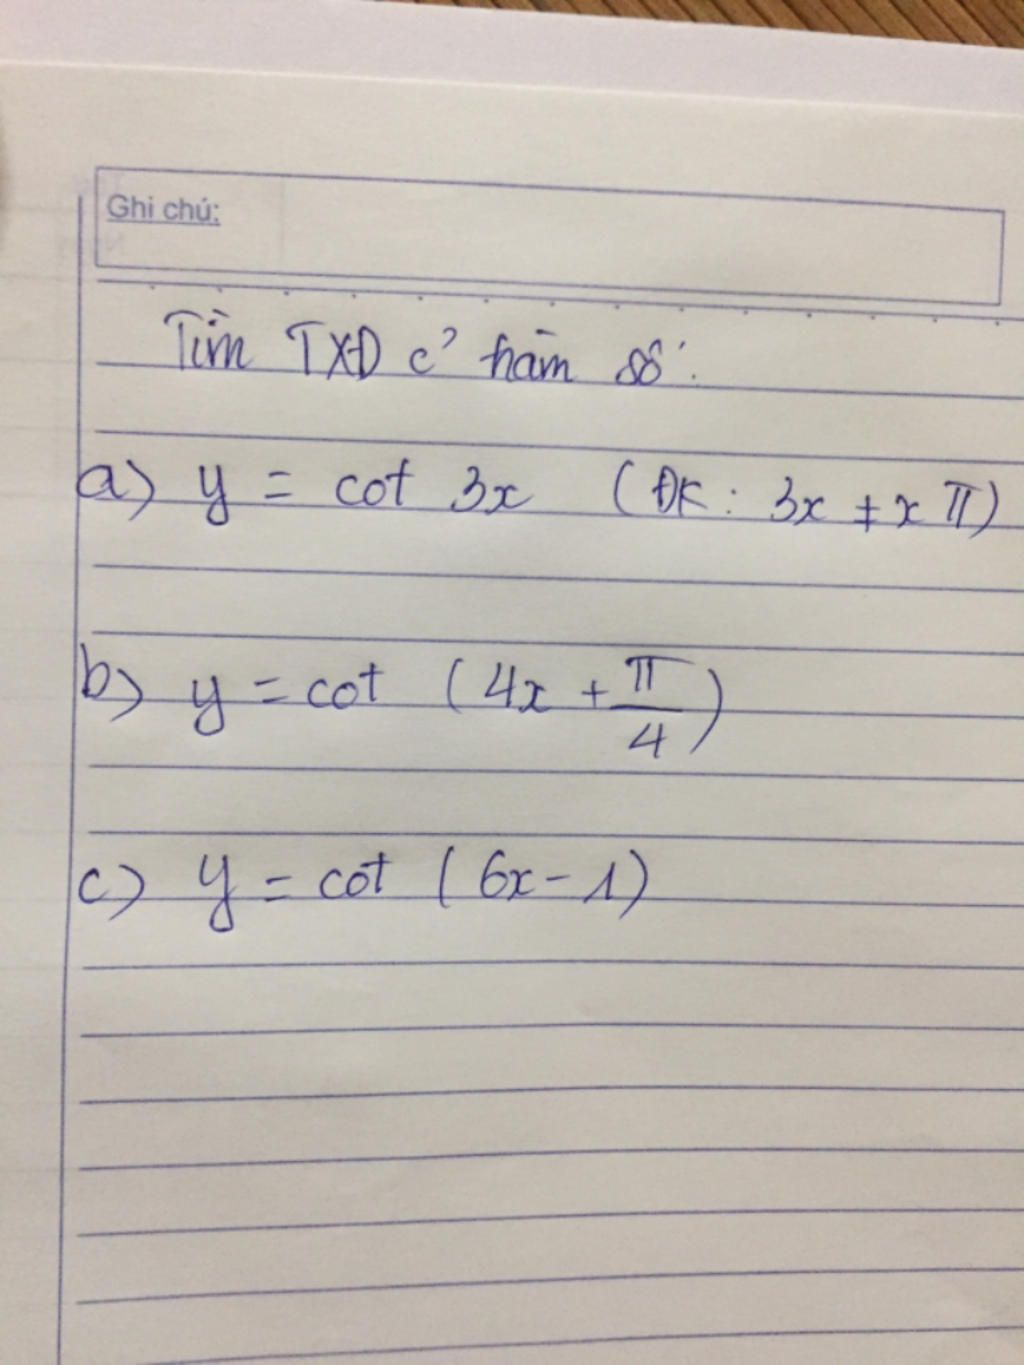 Ghi chú:
Tìm TXĐ c² hàm số:
a) y = cot 3x (ĐK: 3x ≠ x π)
b) y = cot (4x + π/4)
c) y = cot (6x - 1)